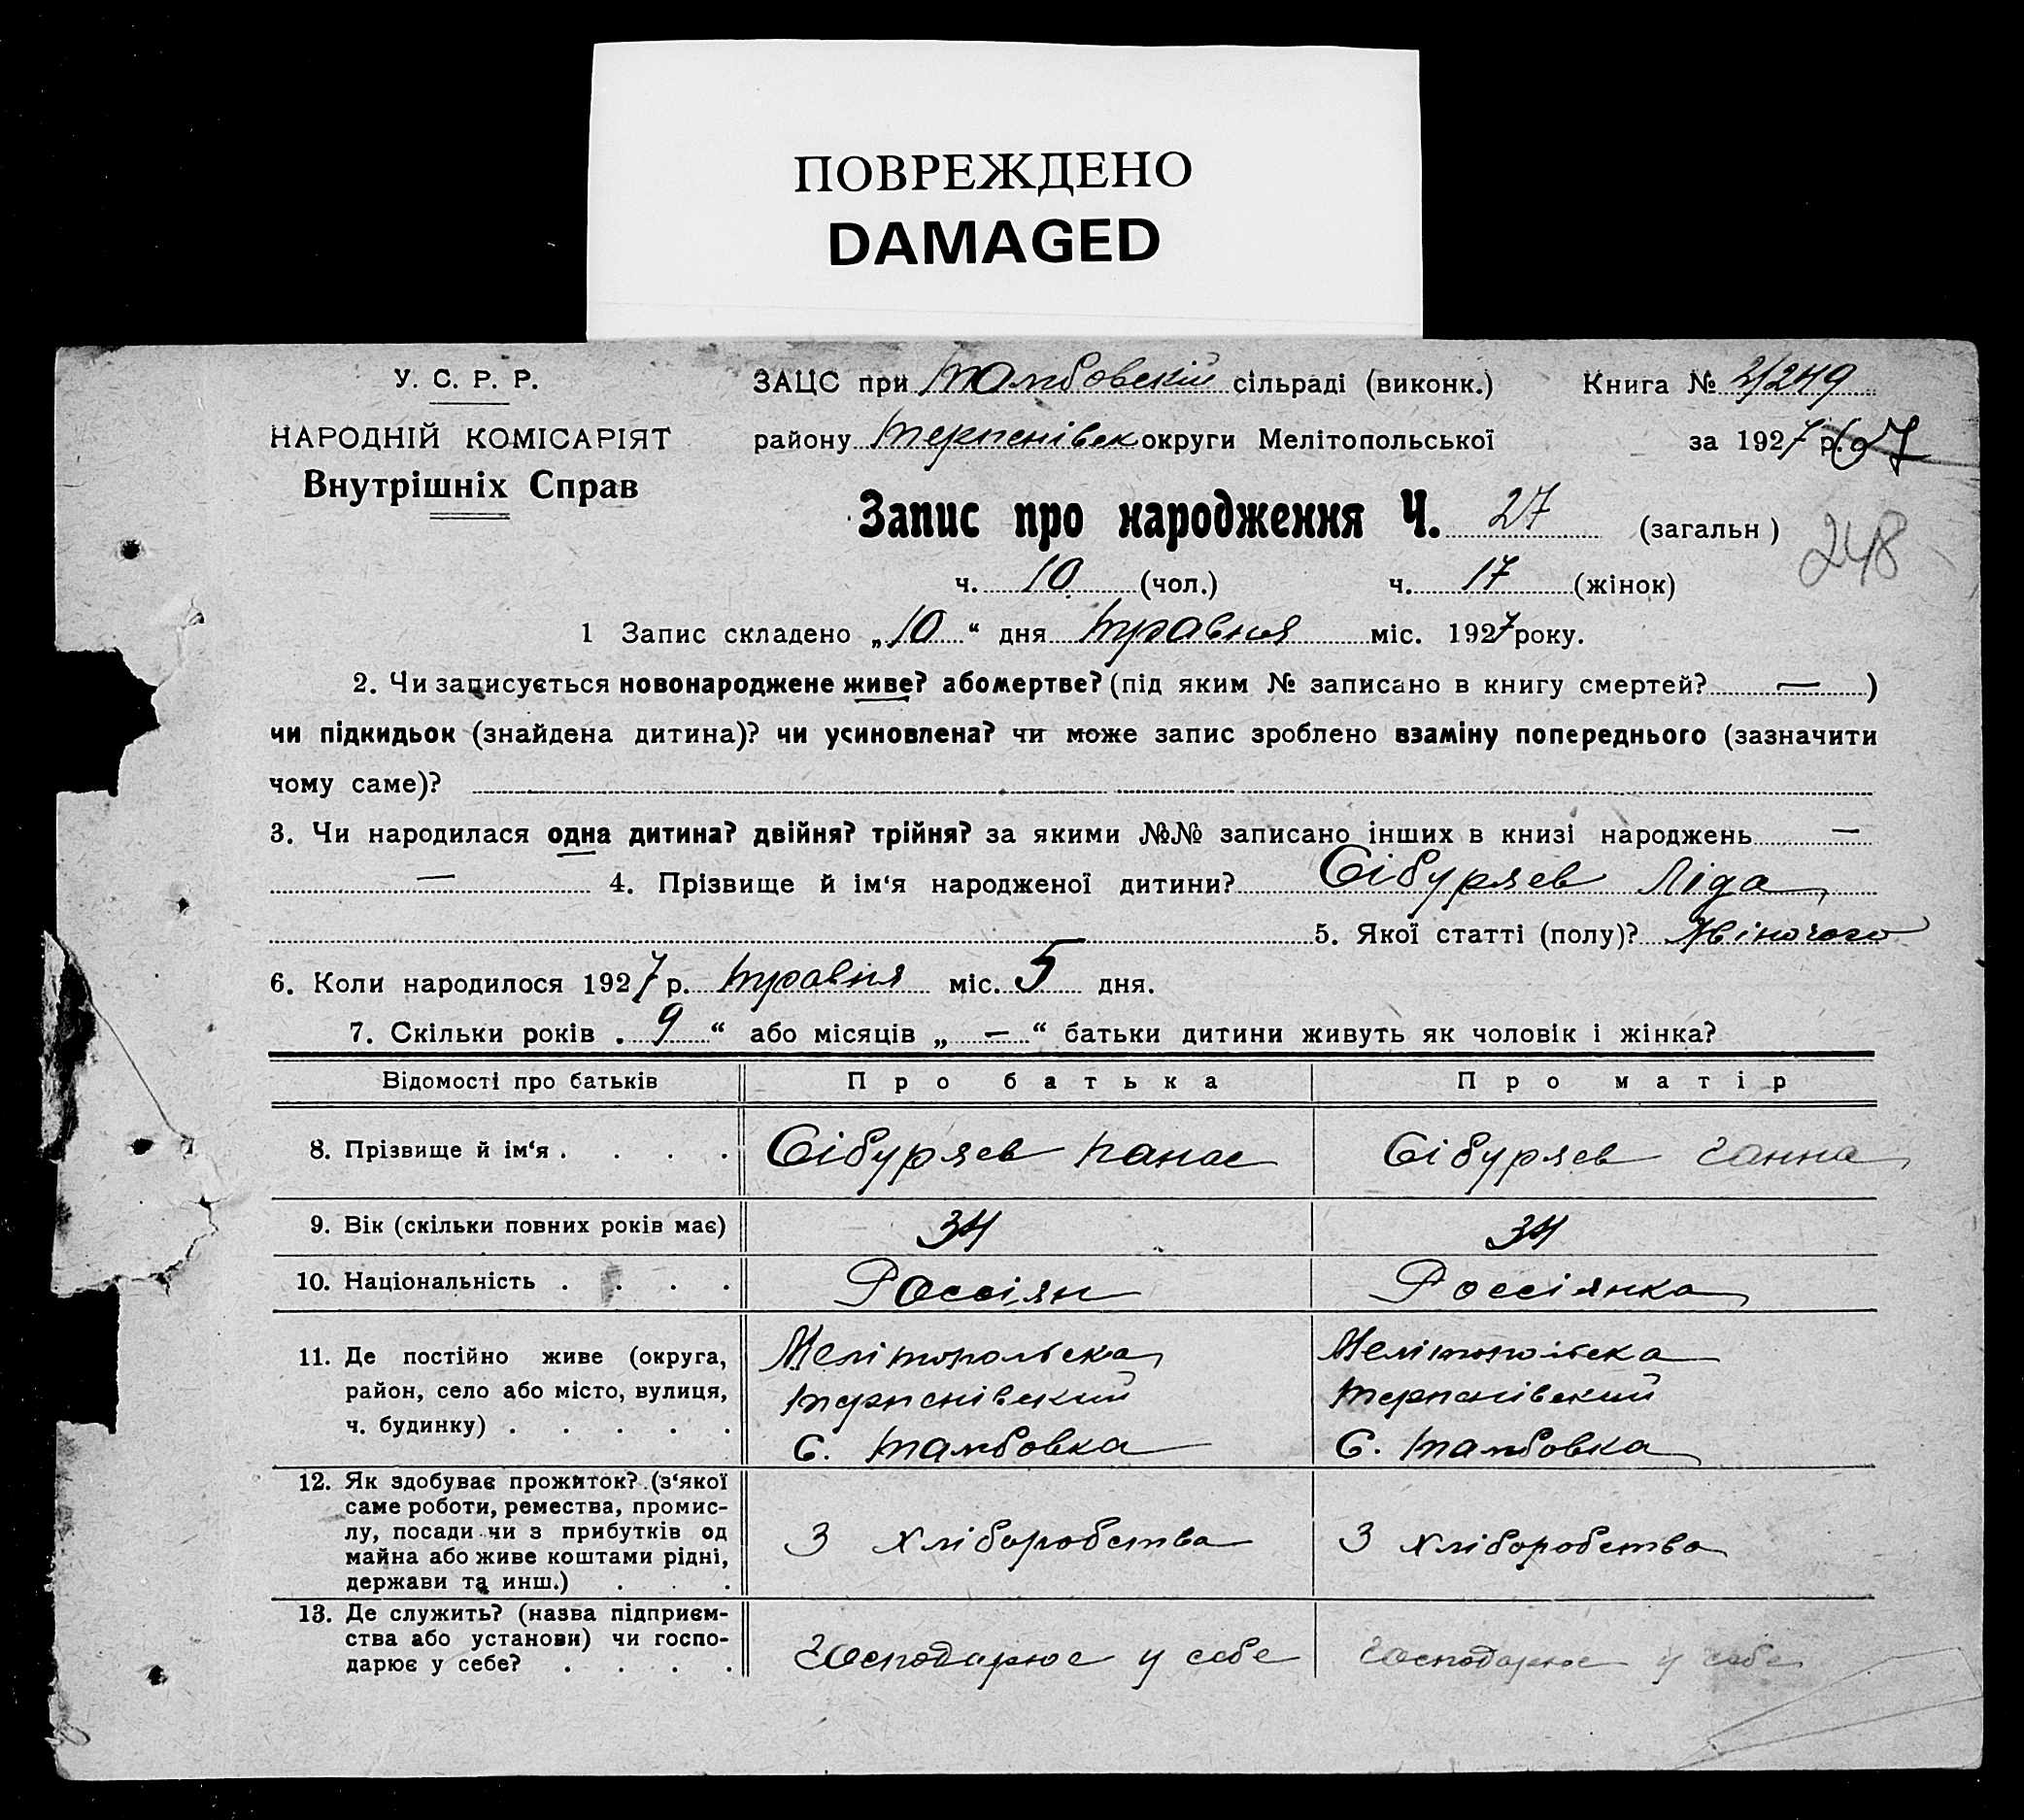 ПОВРЕЖДЕНО
DAMAGED
У. С. Р. Р.
НАРОДНІЙ КОМІСАРІЯТ
Внутрішніх Справ
ЗАЦС при Тамбовскій сільраді (виконк.) Книга № 2/249
району Терпенівск округи Мелітопольської за 1927 р.
Запис про народження Ч. 27 (загальн)
248
ч. 10 (чол.) ч. 17 (жінок)
1 Запис складено „10“ дня травня міс. 1927 року.
2. Чи записується новонароджене живе? або мертве? (під яким № записано в книгу смертей? — )
чи підкидьок (знайдена дитина)? чи усиновлена? чи може запис зроблено взаміну попереднього (зазначити
чому саме)?
3. Чи народилася одна дитина? двійня? трійня? за якими №№ записано інших в книзі народжень —
— 4. Прізвище й ім‘я народженої дитини? Сібуряев Ліда
5. Якої статті (полу)? Жіночого
6. Коли народилося 1927 р. травня міс. 5 дня.
7. Скільки років „ 9 “ або місяців „ — “ батьки дитини живуть як чоловік і жінка?
Відомості про батьків Про батька Про матір
8. Прізвище й ім‘я . . . . Сібуряев Панас Сібуряев Ганна
9. Вік (скільки повних років має) 34 34
10. Національність . . . . Россіян Россіянка
11. Де постійно живе (округа,
район, село або місто, вулиця,
ч. будинку) . . . . .
Мелітопольска
Терпенівский
С. Тамбовка
Мелітопольска
Терпенівский
С. Тамбовка
12. Як здобуває прожиток? (з‘якої
саме роботи, ремества, промис-
лу, посади чи з прибутків од
майна або живе коштами рідні,
держави та инш.) . . .
З хліборобства
З хліборобства
13. Де служить? (назва підприєм-
ства або установи) чи госпо-
дарює у себе? . . . .
Господарює у себе
Господарює у себе